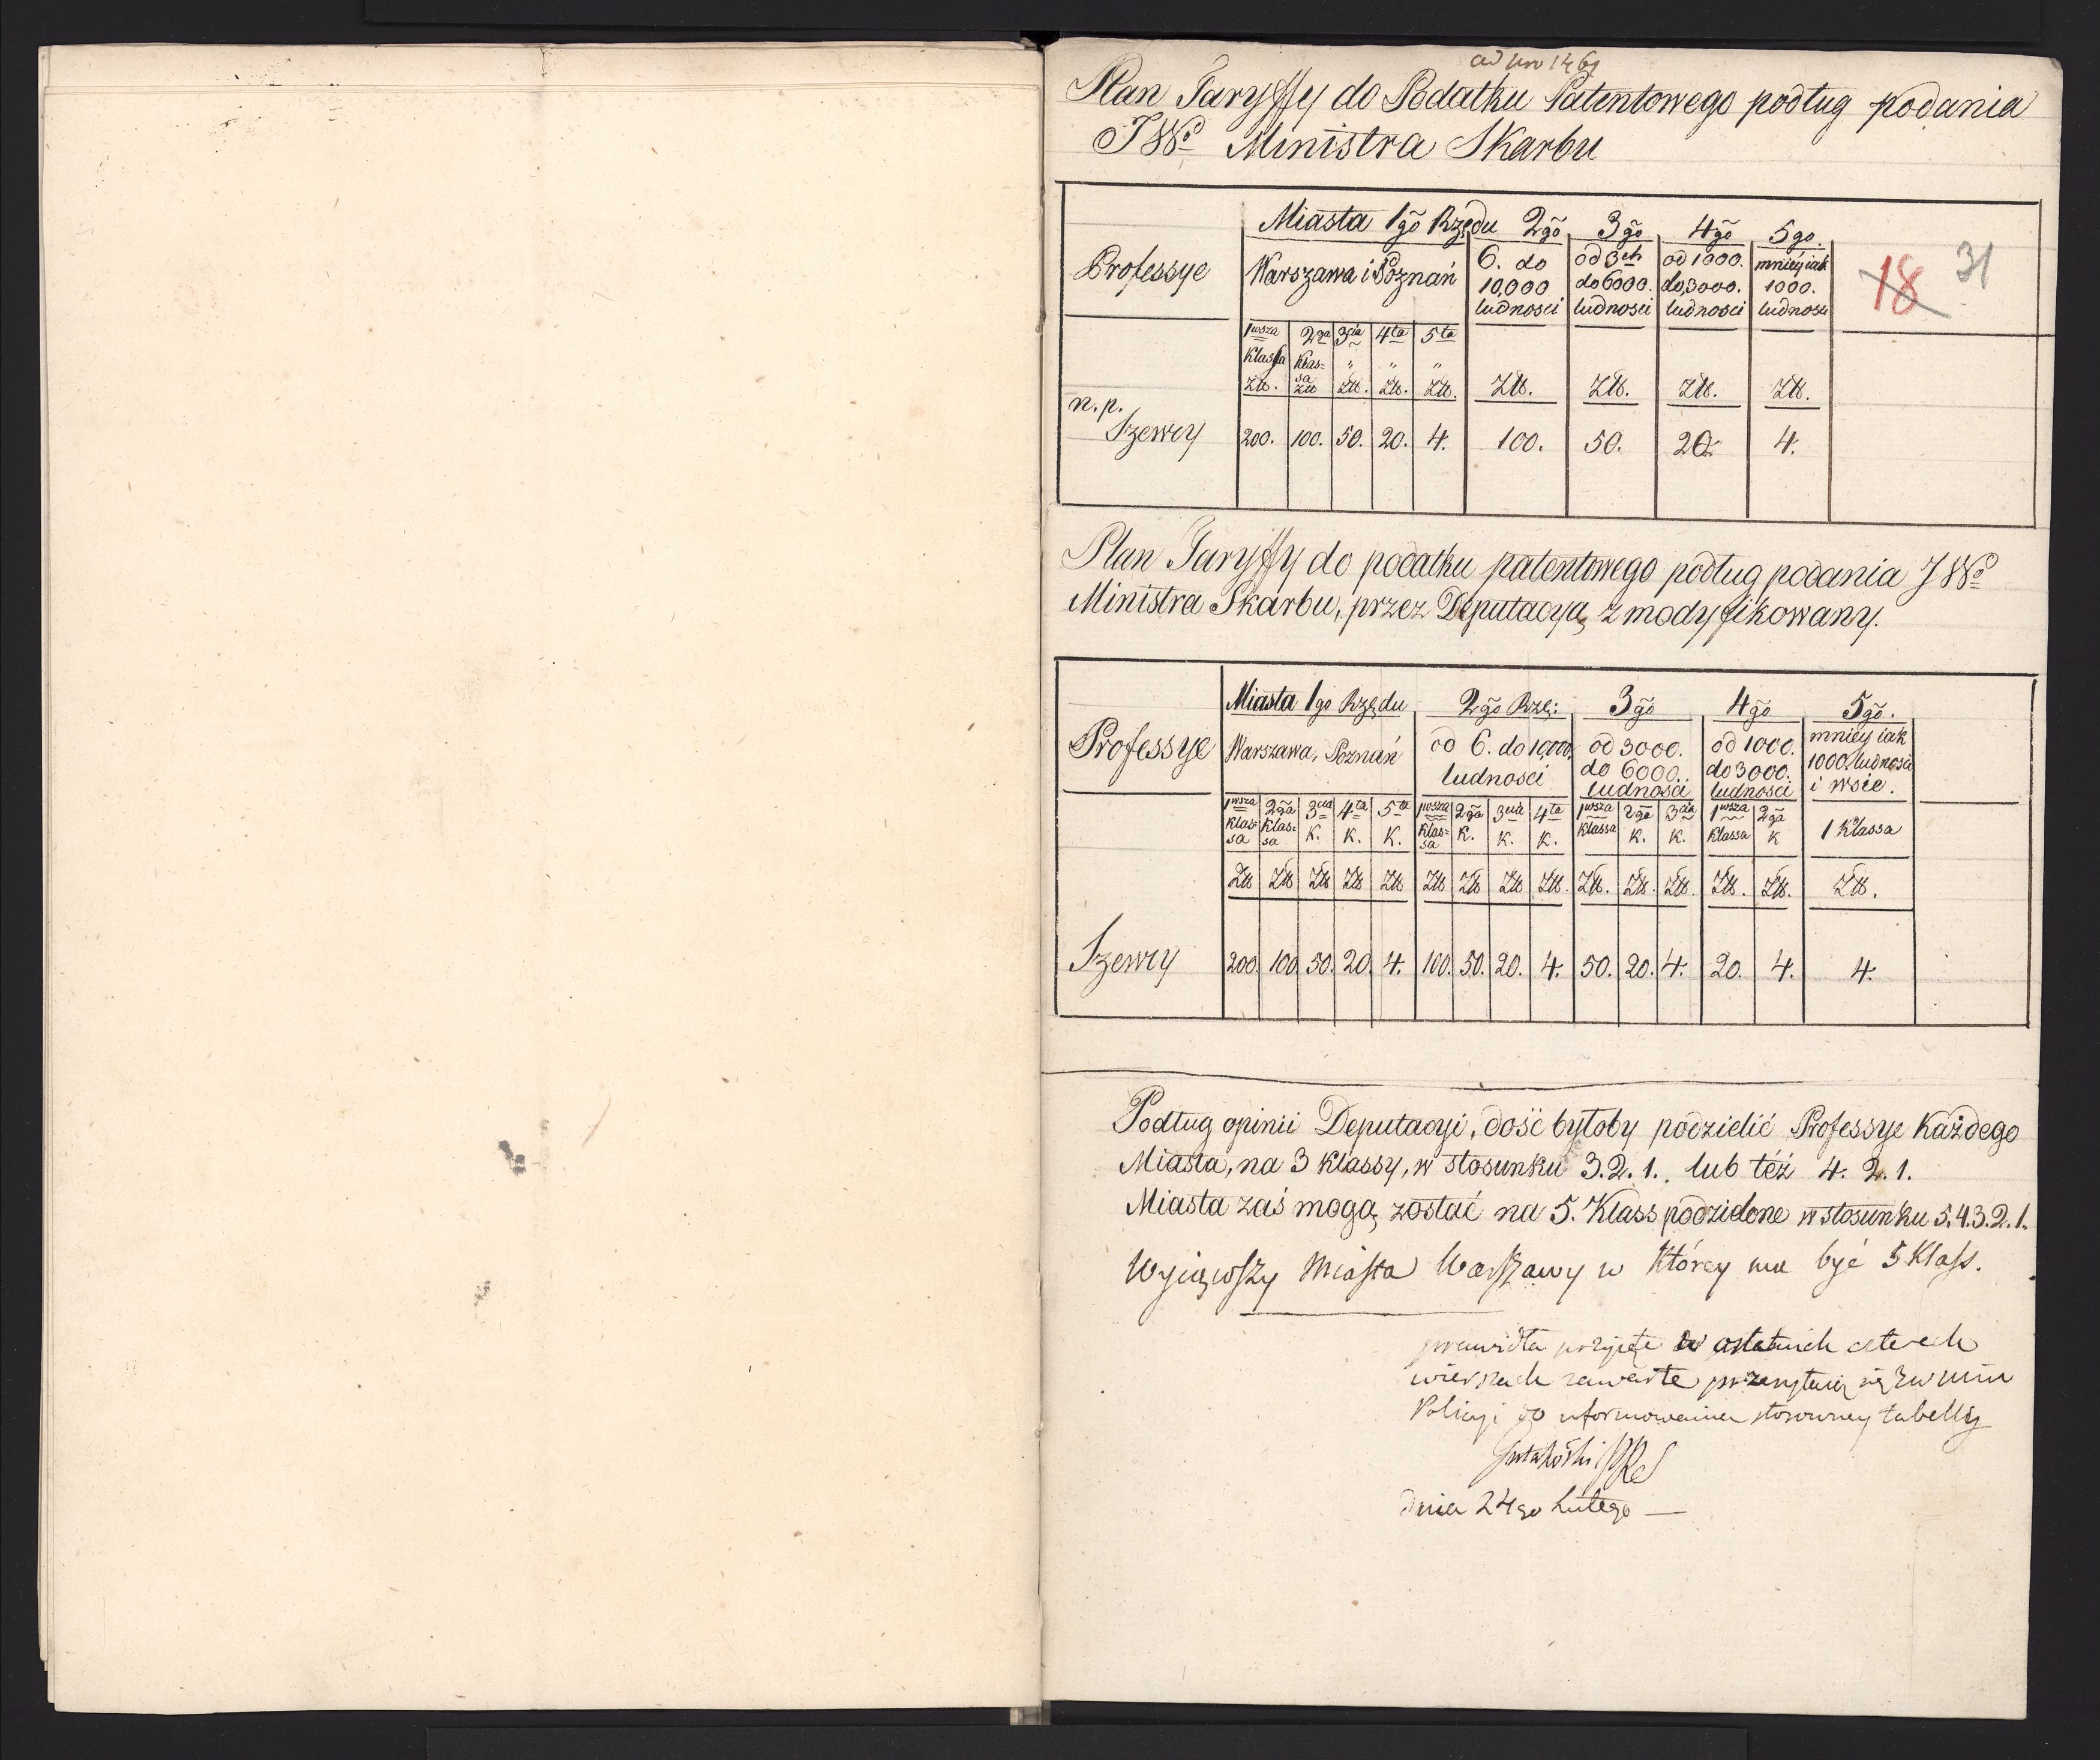 ad nro 1461
Plan Taryffy do Podatku Patentowego podług podania
JWo Ministra Skarbu
Professye
Miasta 1go Rzędu 2go 3go 4go 5go.
Warszawa i Poznań
6. do 10,000 ludnosci
od 3ch do 6000. ludnosci
od 1000. do 3000. ludnosci
mniéy iak 1000. ludnosci
18 31
1wsza Klassa 2ga Klas-sa 3cia " 4ta " 5ta "
Złł. Złł Złł. Złł. Złł. Złł. Złł. Złł. Złł.
n.p.
Szewcy 200. 100. 50. 20. 4. 100. 50. 20. 4.
Plan Taryffy do podatku patentowego podług podania JWo
Ministra Skarbu, przez Deputacyą zmodyfikowany.
Professye
Miasta 1go Rzędu 2go Rzę: 3go 4go 5go.
Warszawa, Poznań
od 6. do 10,000. ludnosci
od 3000. do 6000. ludnosci
od 1000. do 3000. ludnosci
mniéy iak 1000 ludnosci i wsie.
1wsza Klas-sa 2ga Klas-sa 3cia K. 4ta K. 5ta K. 1wsza Klas-sa 2ga K. 3cia K. 4ta K. 1wsza Klassa 2ga K. 3cia K. 1wsza Klassa 2ga K 1 Klassa
Złł Złł Złł Złł Złł Złł Złł Złł Złł. Złł. Złł. Złł. Złł. Złł. Złł.
Szewcy 200. 100 50. 20. 4. 100. 50. 20. 4. 50. 20. 4. 20. 4. 4.
Podług opinii Deputacyi, dość byłoby podzielić Professye Każdego
Miasta, na 3 Klassy, w stosunku 3.2.1. lub też 4.2.1.
Miasta zaś mogą zostać na 5. Klass podzielone w stosunku 5.4.3.2.1.
Wyiąwszy Miasta Warszawy w Którey ma być 5 Klass.
prawidła przyjęte w ostatnich czterech
wierszach zawarte przesyłaią się JW Min
Policyi do uformowania stosowney tabelli
dnia 24go Lutego —